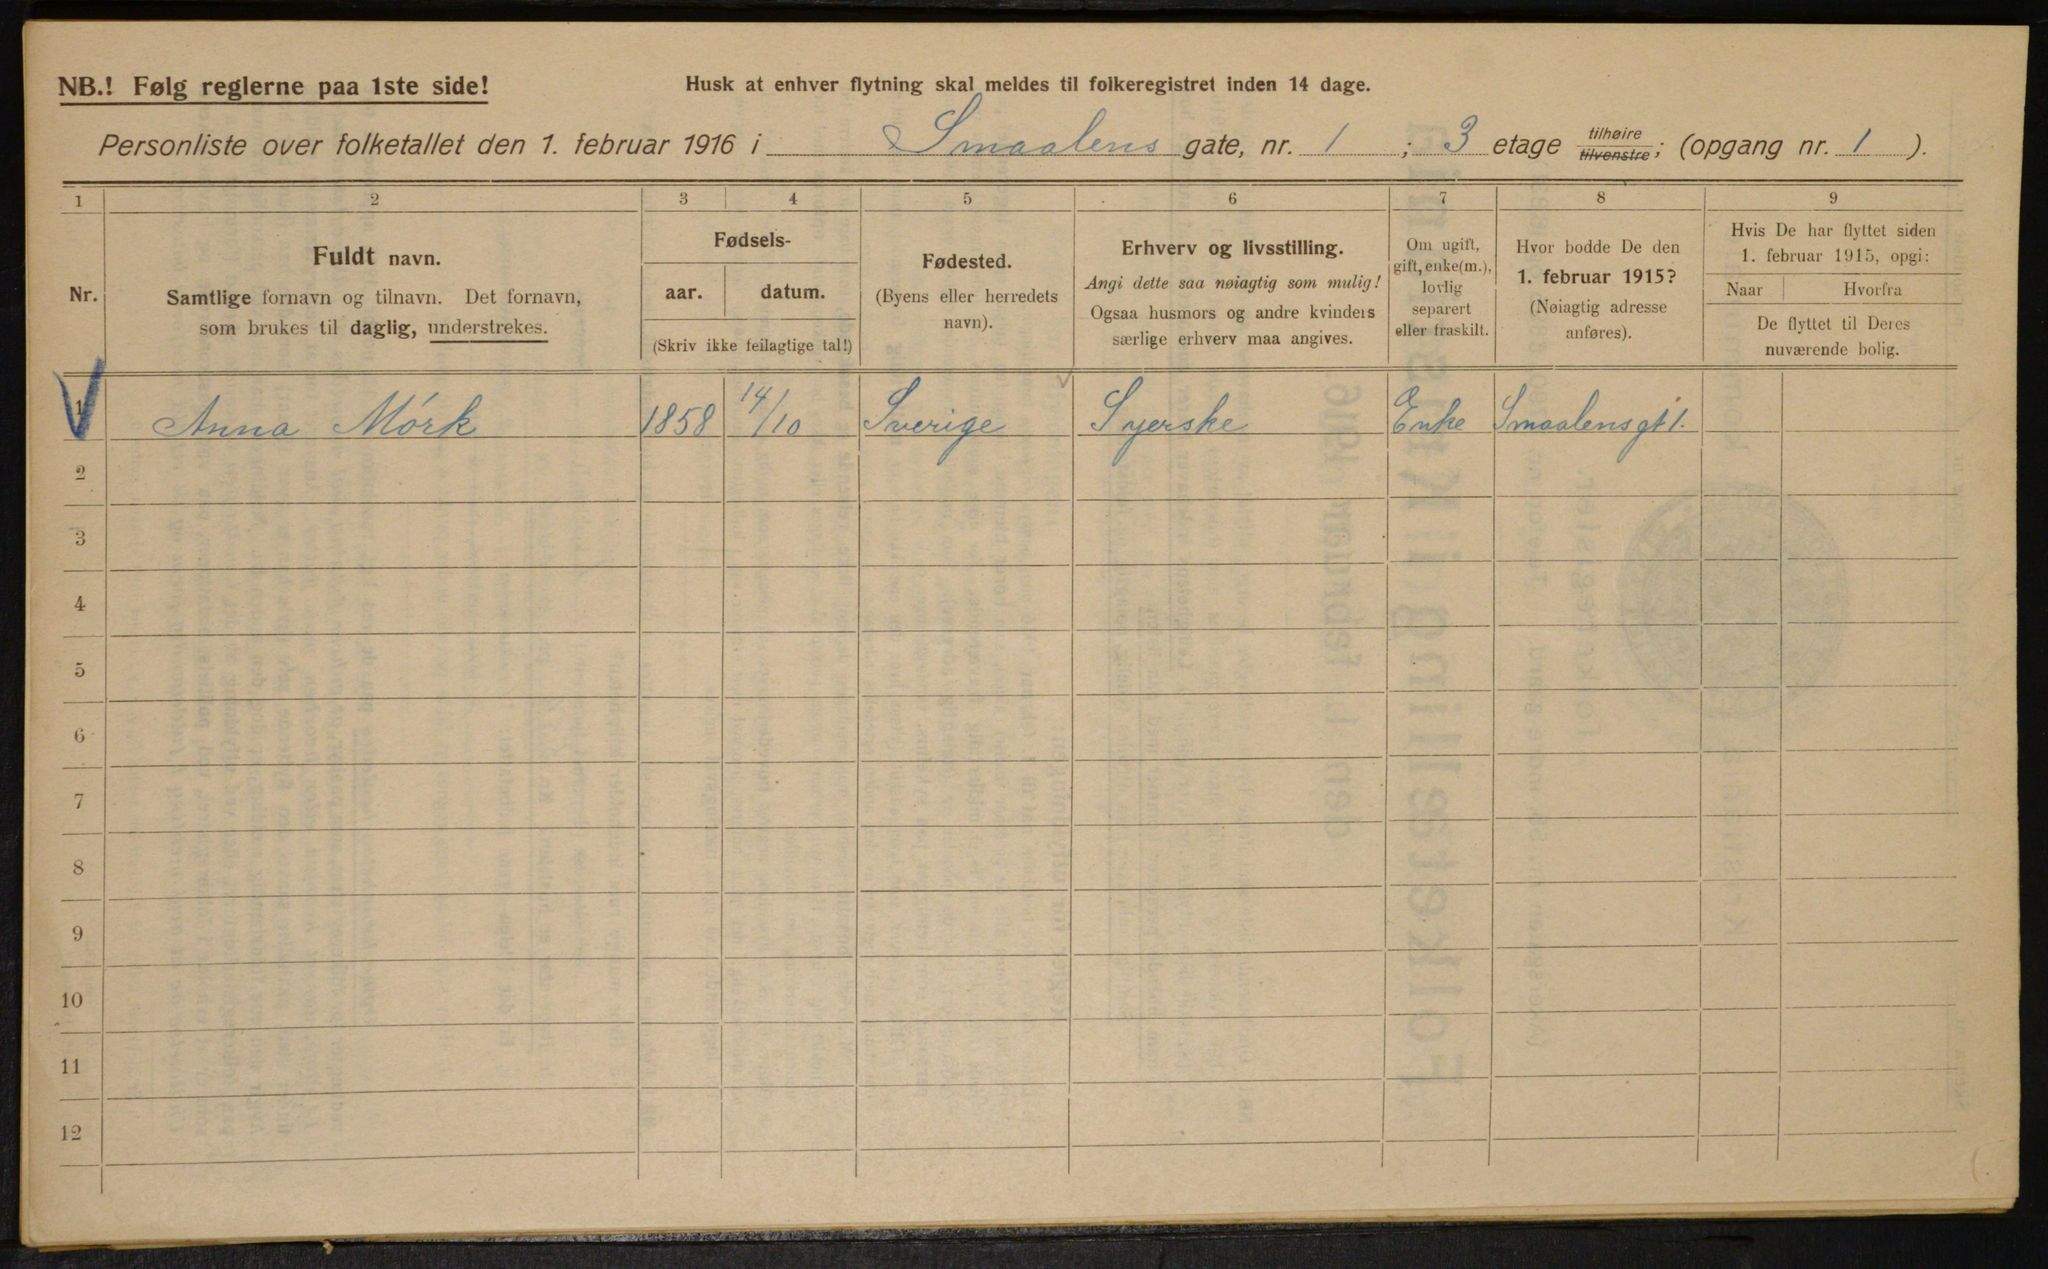 NB.! Følg reglerne paa 1ste side!
Husk at enhver flytning skal meldes til folkeregistret inden 14 dage.
Personliste over folketallet den 1. februar 1916 i Smaalens gate, nr. 1 ; 3 etage tilhøire tilvenstre; (opgang nr. 1 ).
1 2 3 4 5 6 7 8 9
Nr.
Fuldt navn.
Samtlige fornavn og tilnavn. Det fornavn,
som brukes til daglig, understrekes.
Fødsels-
aar. datum.
(Skriv ikke feilagtige tal!)
Fødested.
(Byens eller herredets
navn).
Erhverv og livsstilling.
Angi dette saa nøiagtig som mulig!
Ogsaa husmors og andre kvinders
særlige erhverv maa angives.
Om ugift,
gift, enke(m.),
lovlig
separert
eller fraskilt.
Hvor bodde De den
1. februar 1915?
(Nøiagtig adresse
anføres).
Hvis De har flyttet siden
1. februar 1915, opgi:
Naar Hvorfra
De flyttet til Deres
nuværende bolig.
1 Anna Mórk 1858 14/10 Sverige Syerske Enke Smaalensgt 1.
2
3
4
5
6
7
8
9
10
11
12